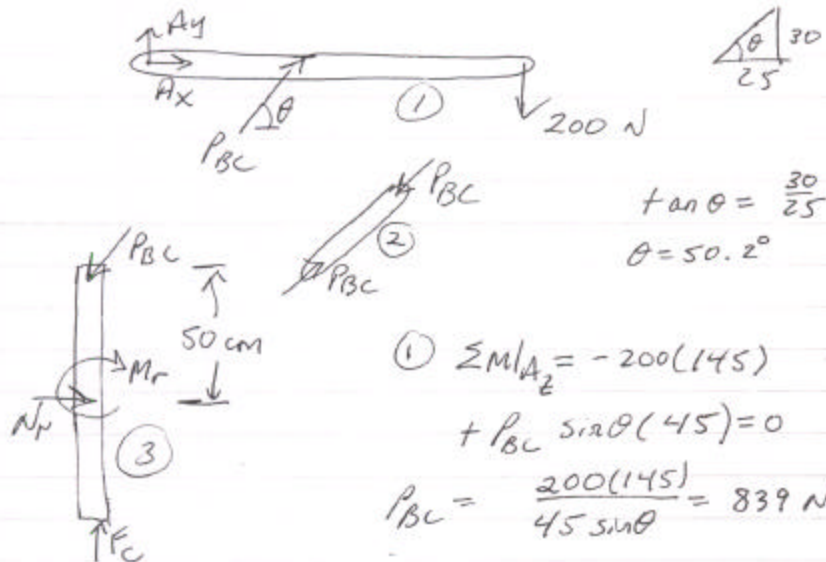 Ay
Ax
P_BC
θ
①
200 N
θ
30
25
P_BC
②
P_BC
tan θ = 30/25
θ = 50.2°
P_BC
50 cm
Mr
Nr
③
Fc
① ΣM|A_z = -200(145)
+ P_BC sinθ(45) = 0
P_BC = 200(145) / 45 sinθ = 839 N